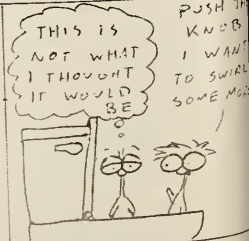 THIS IS
NOT WHAT
I THOUGHT
IT WOULD
BE
PUSH
KNOB
I WANT
TO SWIRL
SOME